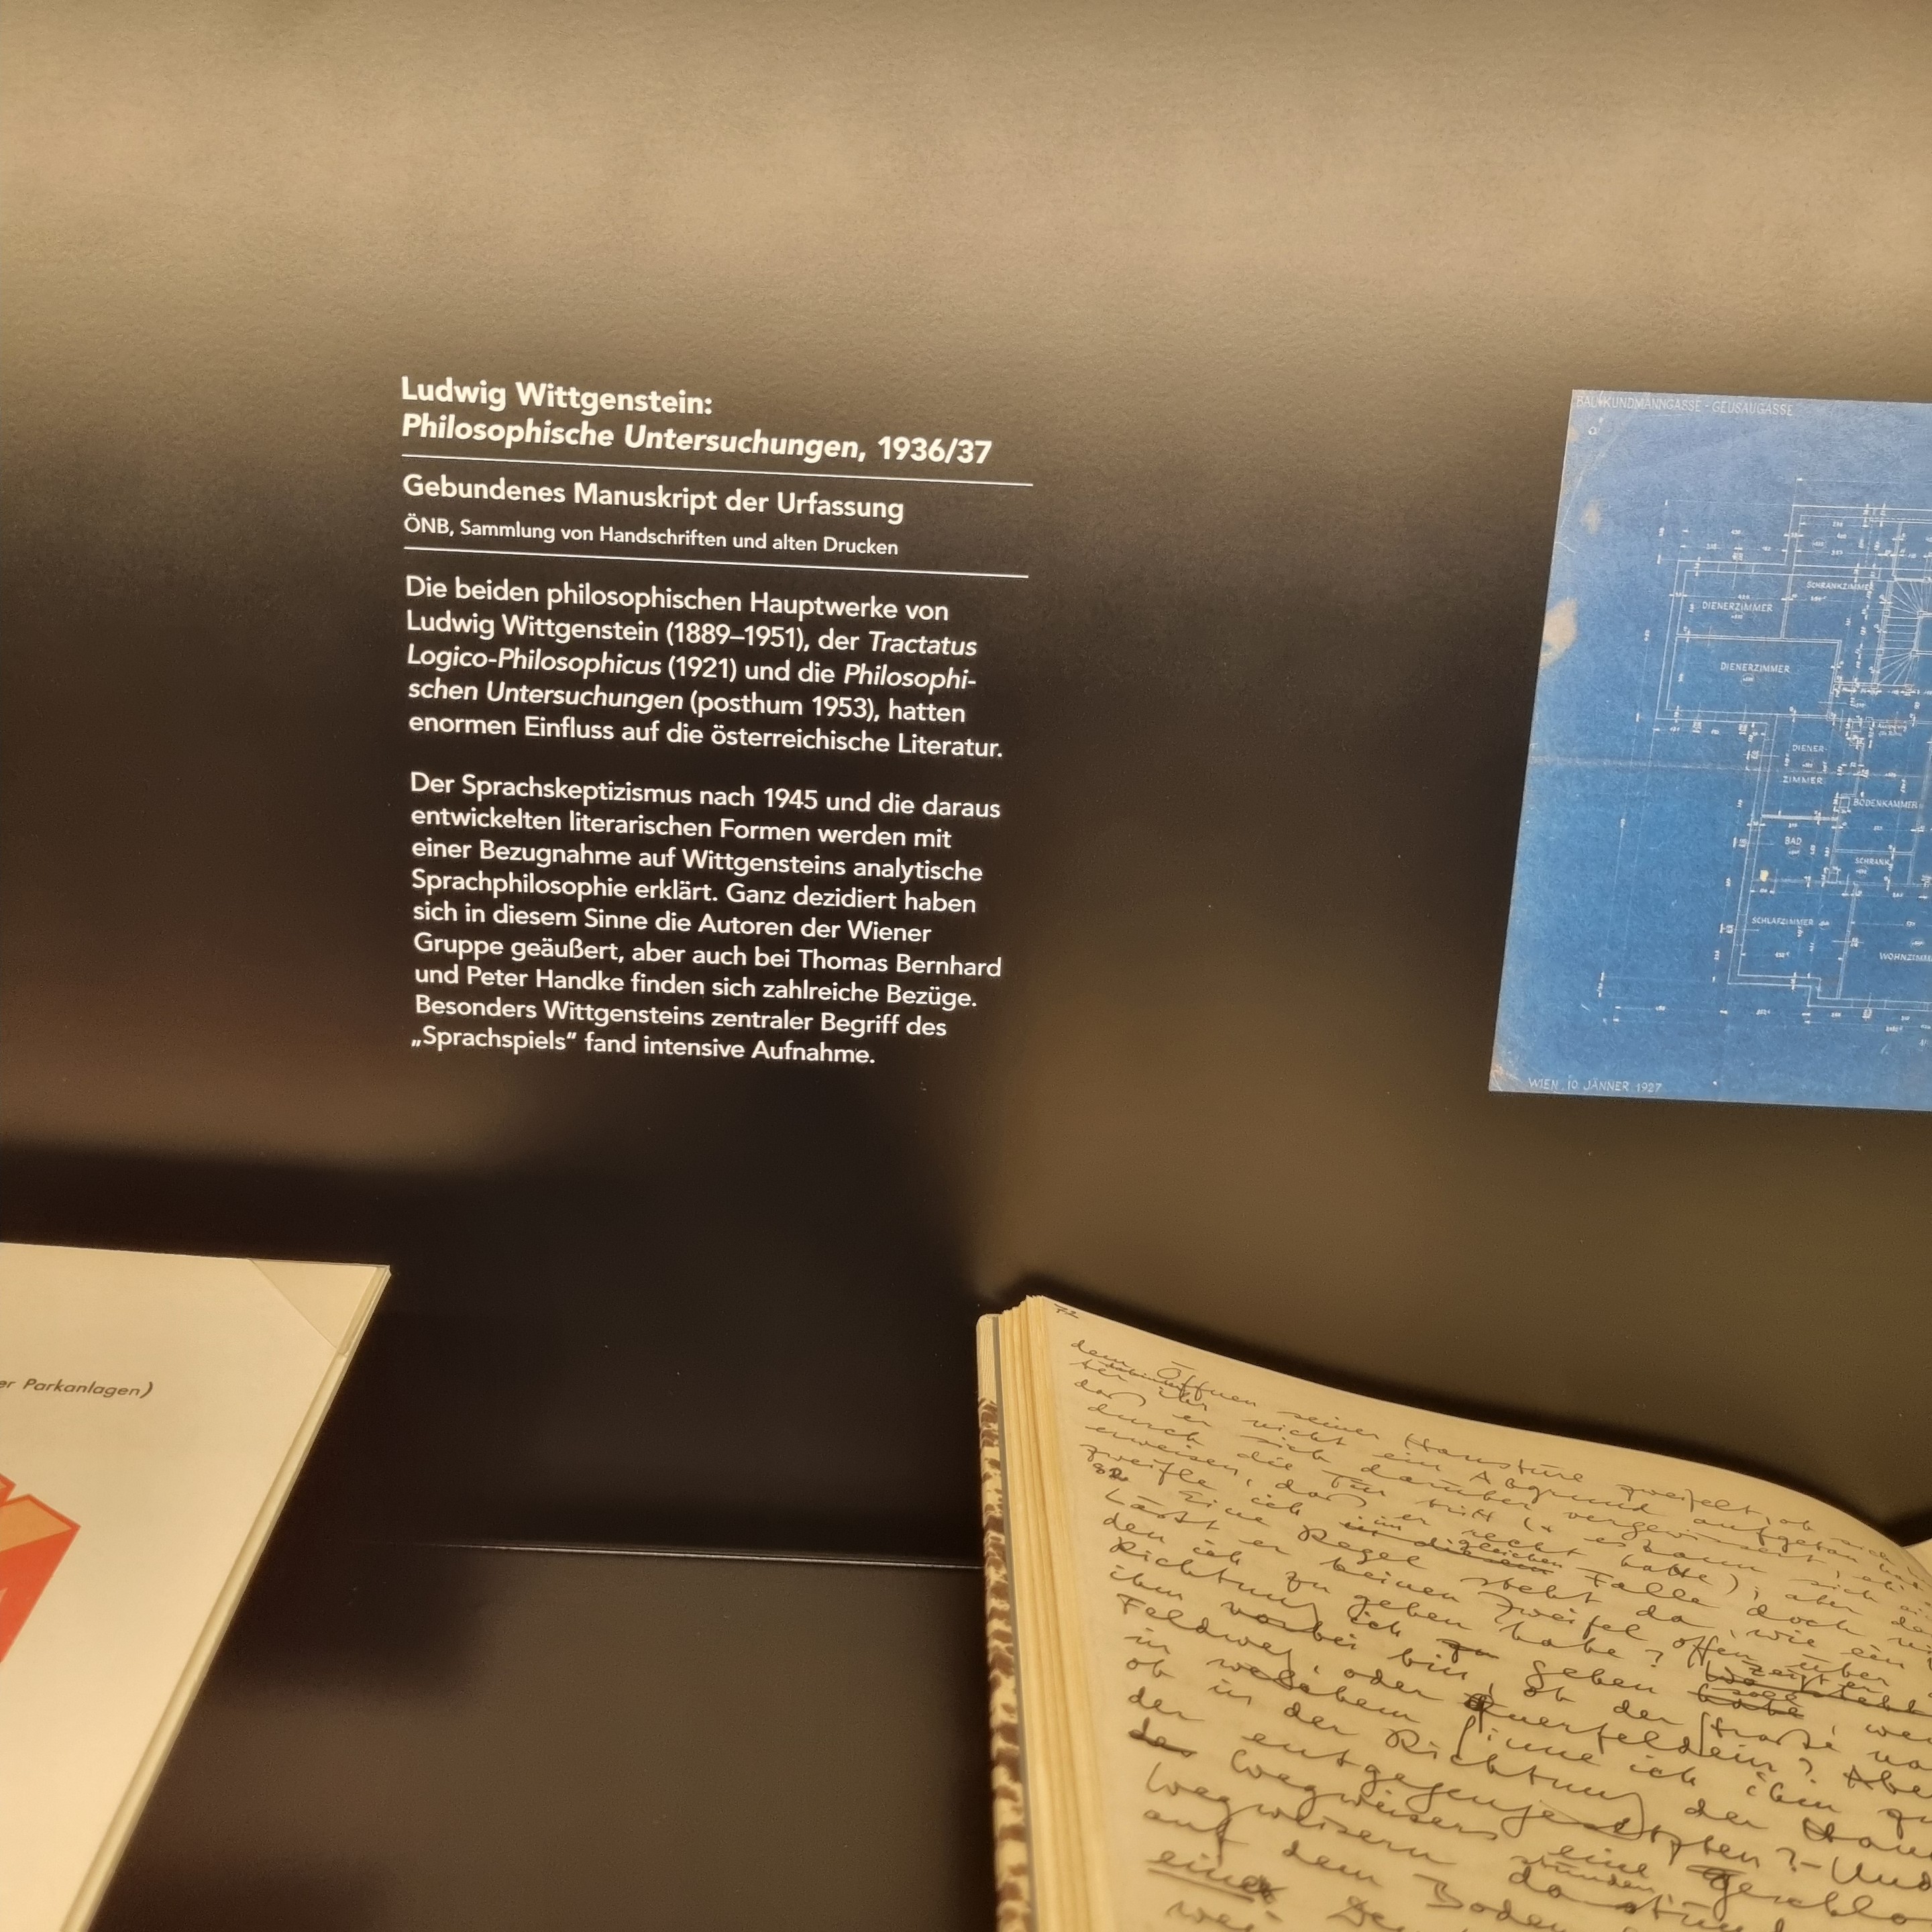 Ludwig Wittgenstein:
Philosophische Untersuchungen, 1936/37
Gebundenes Manuskript der Urfassung
ÖNB, Sammlung von Handschriften und alten Drucken
Die beiden philosophischen Hauptwerke von
Ludwig Wittgenstein (1889–1951), der Tractatus
Logico-Philosophicus (1921) und die Philosophi-
schen Untersuchungen (posthum 1953), hatten
enormen Einfluss auf die österreichische Literatur.
Der Sprachskeptizismus nach 1945 und die daraus
entwickelten literarischen Formen werden mit
einer Bezugnahme auf Wittgensteins analytische
Sprachphilosophie erklärt. Ganz dezidiert haben
sich in diesem Sinne die Autoren der Wiener
Gruppe geäußert, aber auch bei Thomas Bernhard
und Peter Handke finden sich zahlreiche Bezüge.
Besonders Wittgensteins zentraler Begriff des
„Sprachspiels“ fand intensive Aufnahme.
KUNDMANNGASSE - GEUSAUGASSE
SCHRANKZIMMER
DIENERZIMMER
DIENERZIMMER
DIENER-
ZIMMER
BODENKAMMER
BAD
SCHRANK
SCHLAFZIMMER
WIEN 10 JÄNNER 1927
Parkanlagen)
dem Öffnen seiner Haustüre zweifelt, ob sich
ter ihr nicht ein Abgrund aufgetan
daß er sich darüber vergewissert, ehe
durch die Tür tritt (& es kann sich
erweisen, daß er recht hatte); aber
zweifle ich im gleichen Falle doch
82 Eine Regel steht da, wie ein
Läßt er keinen Zweifel offen über
den ich zu gehen habe? Zeigt er
Richtung ich gehen soll, wenn
ihm vorbei bin, ob der Straße
Feldweg, oder querfeldein? Aber
in welchem Sinne ich ihm
ob in der Richtung der
der entgegengesetzten? –
Wegweisers eine
Wegweisern stünden,
auf dem Boden